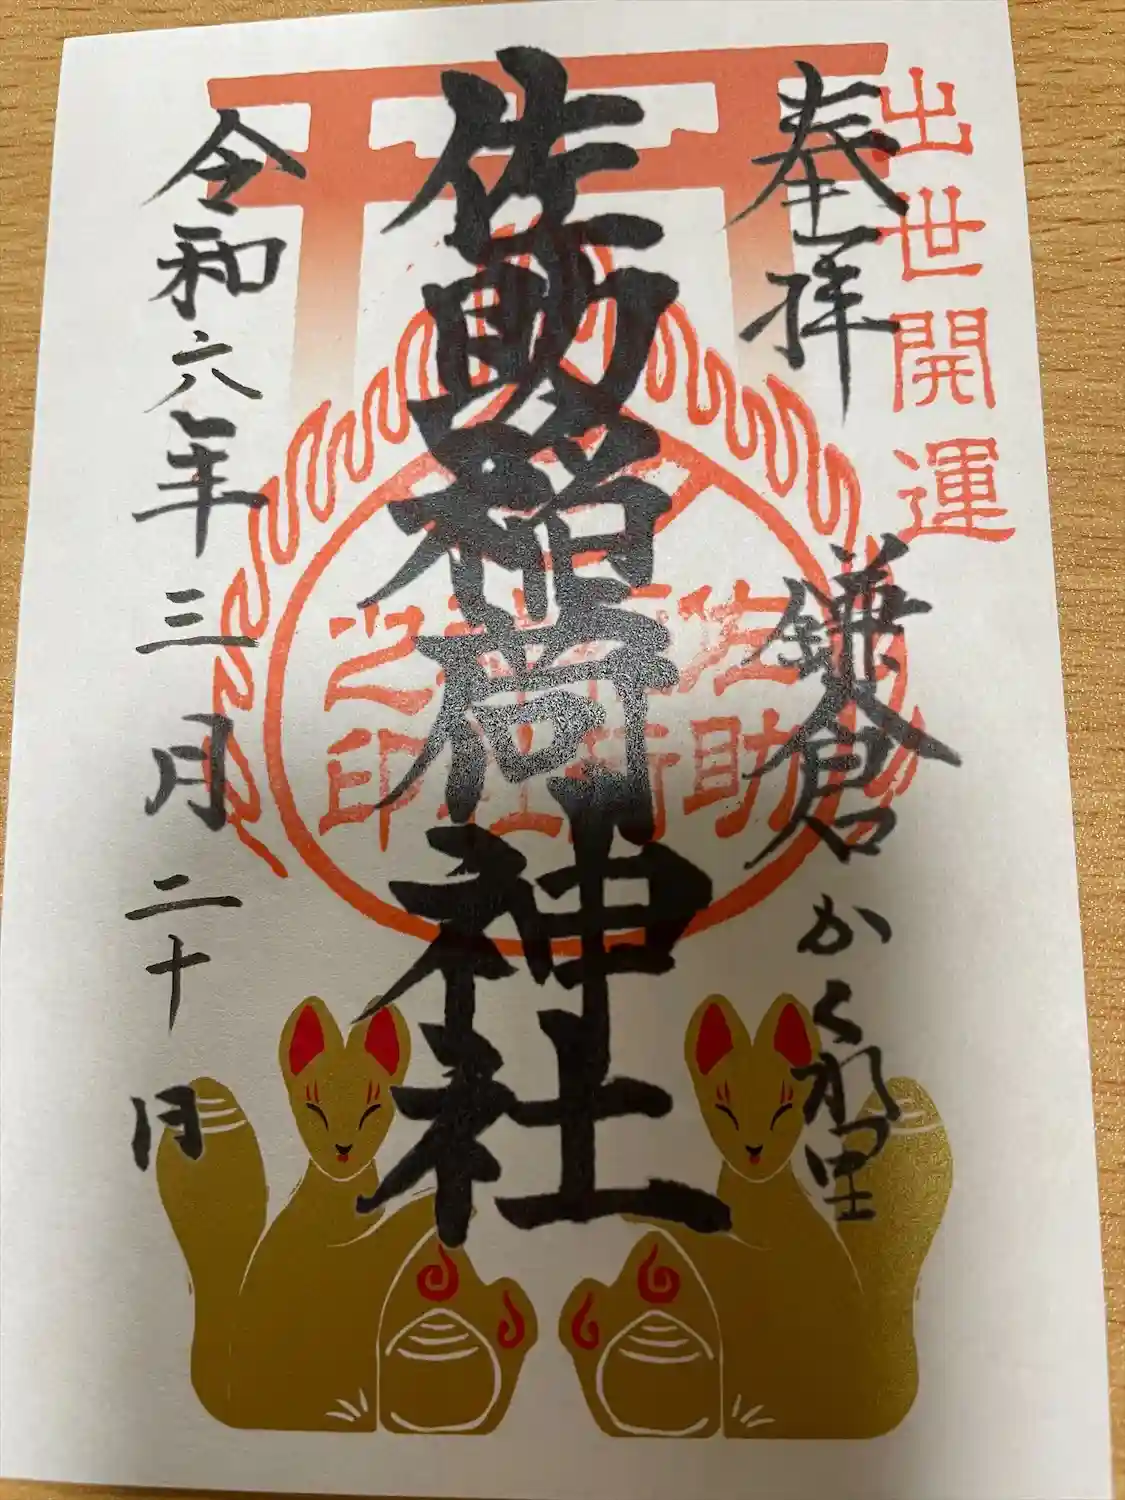 出世開運
奉拝 鎌倉かくれ里
佐助稲荷神社
佐助稲荷神社之印
令和六年三月二十日